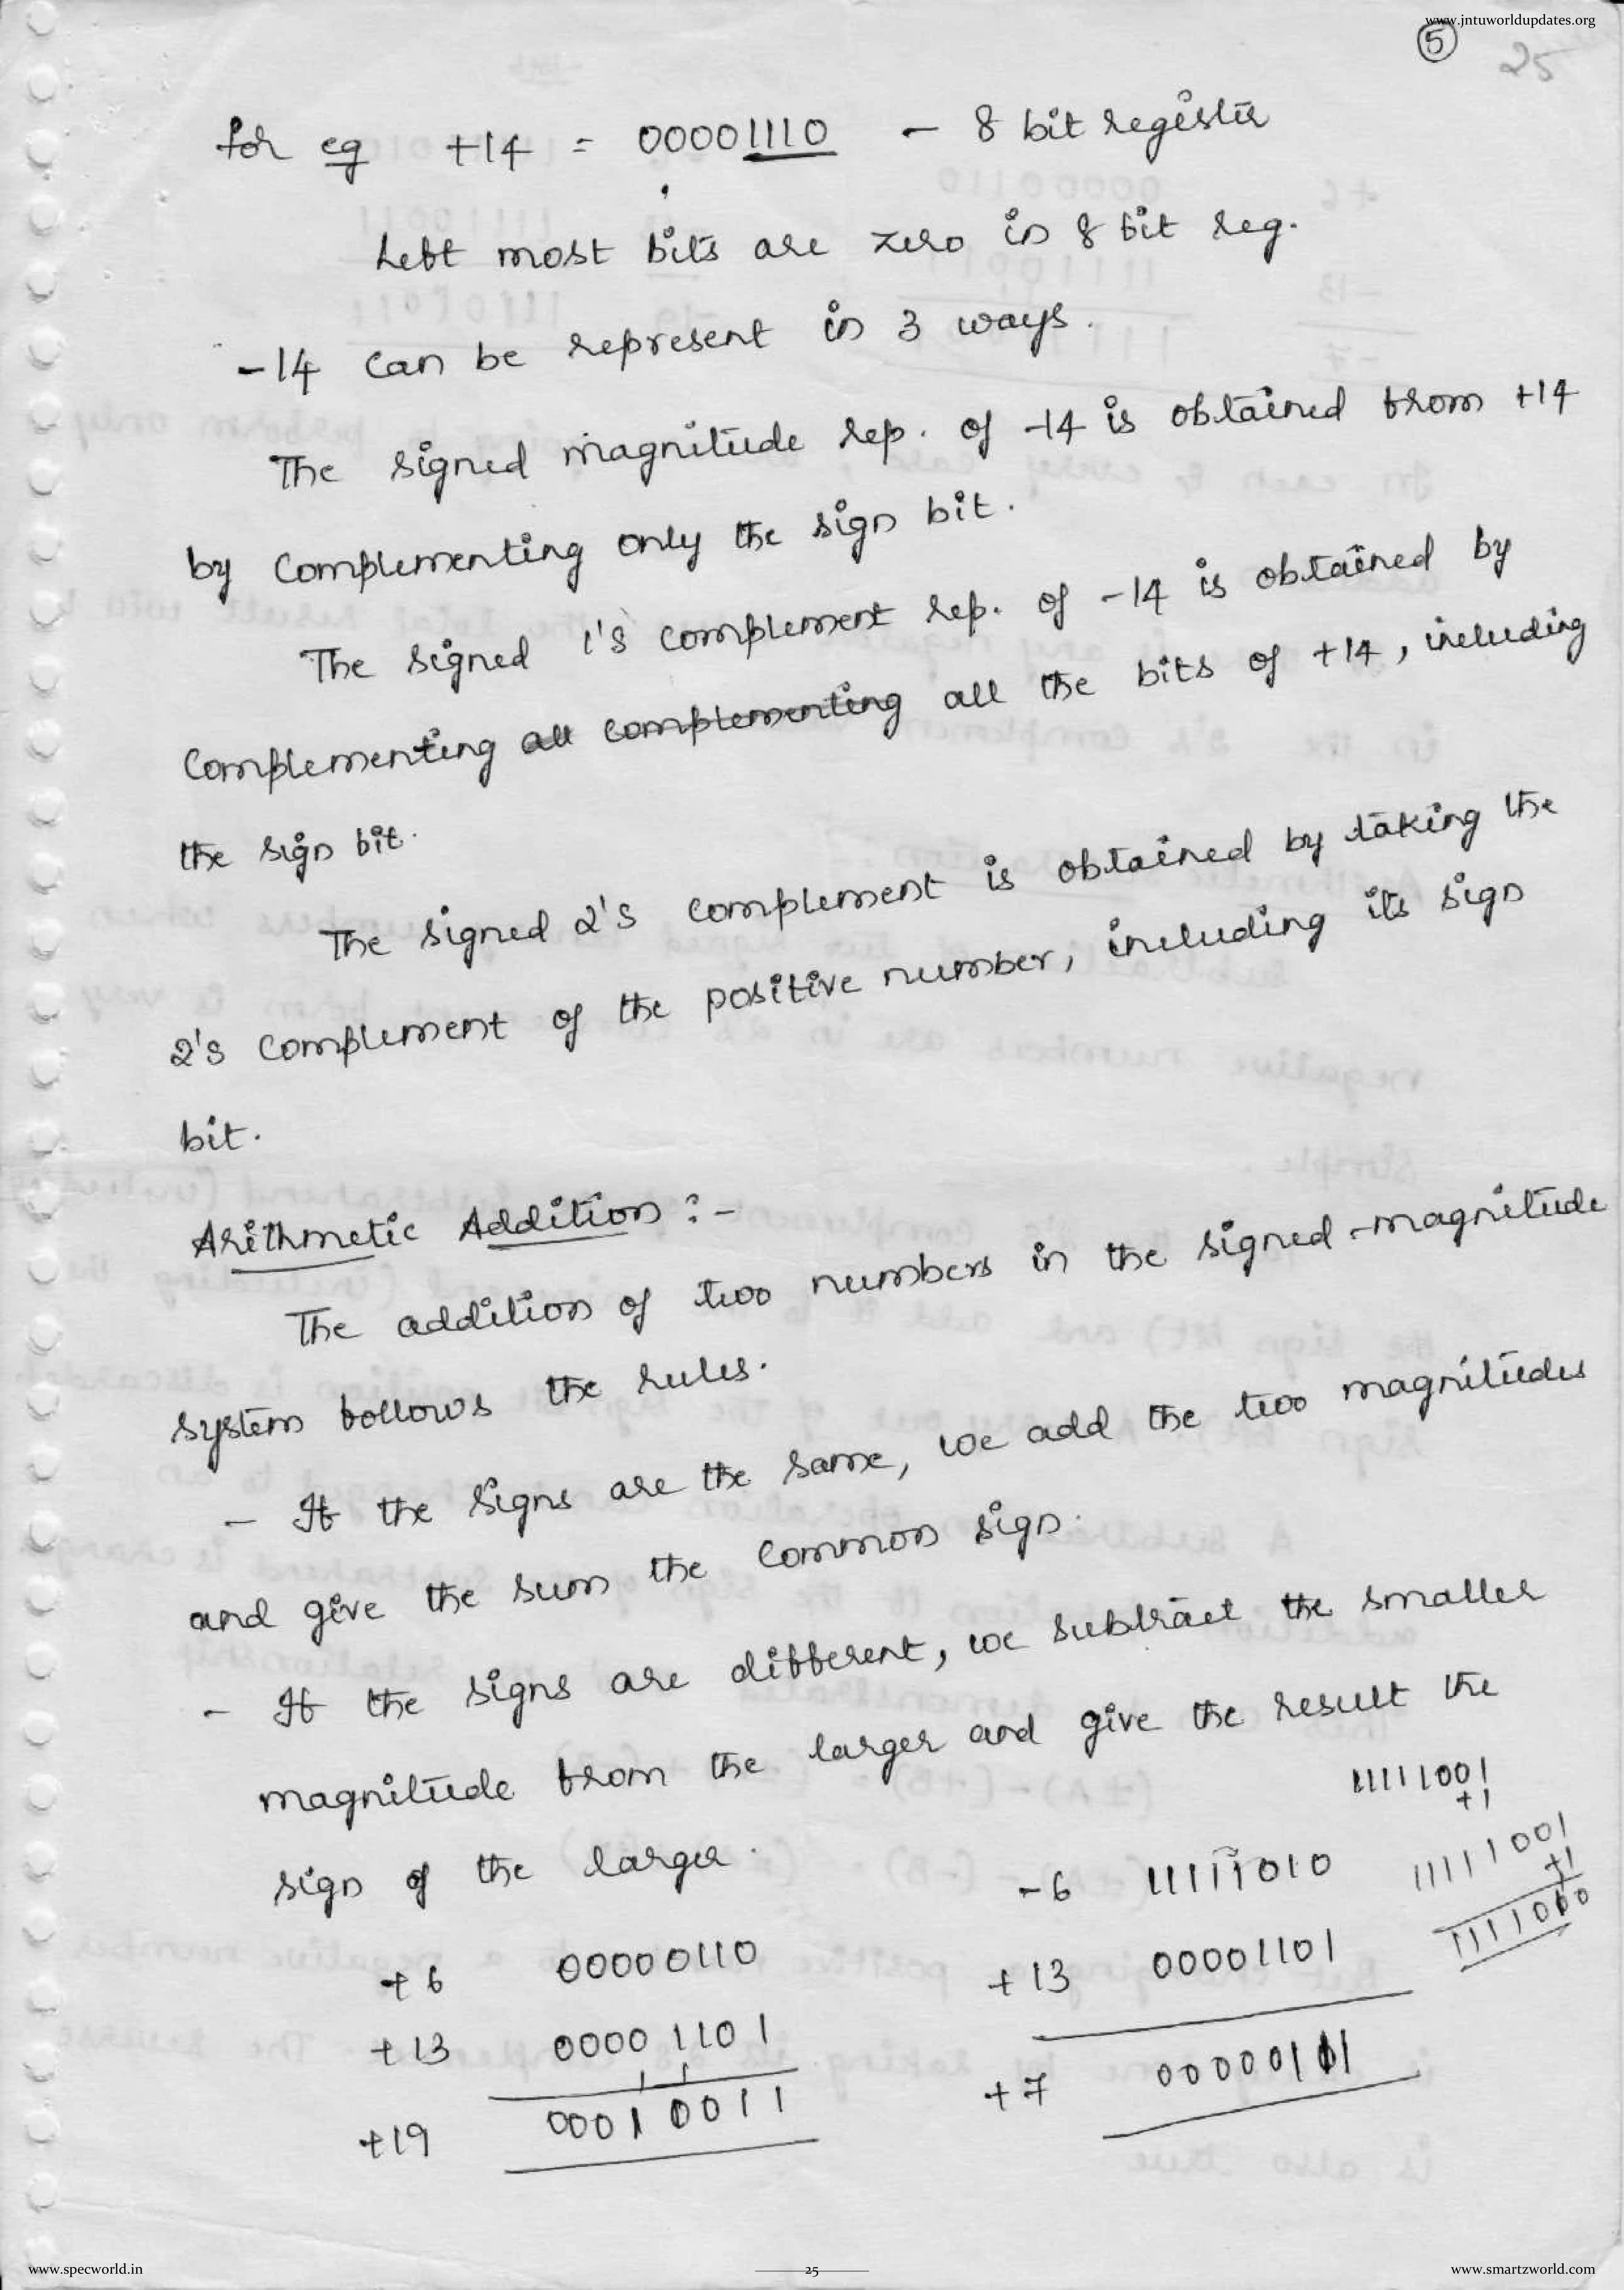 www.jntuworldupdates.org
5
25
for eg +14 = 00001110 - 8 bit register
Left most bits are zero in 8 bit reg.
-14 can be represent in 3 ways.
The signed magnitude rep. of -14 is obtained from +14
by complementing only the sign bit.
The signed 1's complement rep. of -14 is obtained by
complementing all complementing all the bits of +14, including
the sign bit.
The signed 2's complement is obtained by taking the
2's complement of the positive number, including its sign
bit.
Arithmetic Addition :-
The addition of two numbers in the signed-magnitude
system follows the rules.
- If the signs are the same, we add the two magnitudes
and give the sum the common sign.
- If the signs are different, we subtract the smaller
magnitude from the larger and give the result the
sign of the larger.
11111001
+1
+6 00000110
+13 00001101
1 1
+19 00010011
-6 11111010
+13 00001101
+7 00000111
11111001
+1
www.specworld.in
25
www.smartzworld.com